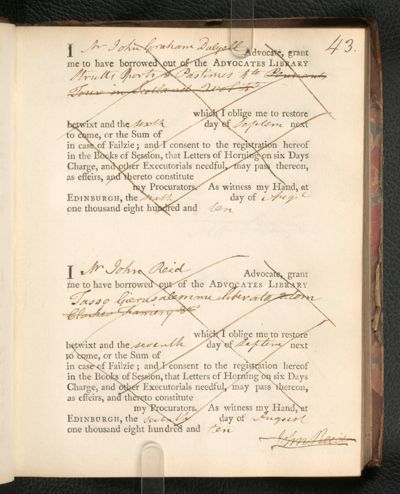 43.
I Mr John Graham Dalyell Advocate, grant
me to have borrowed out of the ADVOCATES LIBRARY
Strutts Sports & Pastimes 4to Pennants
Tour in Scotland
which I oblige me to restore
betwixt and the sixth day of Septem next
to come, or the Sum of
in case of Failzie; and I consent to the registration hereof
in the Books of Session, that Letters of Horning on six Days
Charge, and other Executorials needful, may pass thereon,
as effeirs, and thereto constitute
my Procurators. As witness my Hand, at
EDINBURGH, the sixth day of Augst
one thousand eight hundred and ten
I Mr John Reid Advocate, grant
me to have borrowed out of the ADVOCATES LIBRARY
Tasso Gerusalemme liberata 2 tom
which I oblige me to restore
betwixt and the seventh day of Septem next
to come, or the Sum of
in case of Failzie; and I consent to the registration hereof
in the Books of Session, that Letters of Horning on six Days
Charge, and other Executorials needful, may pass thereon,
as effeirs, and thereto constitute
my Procurators. As witness my Hand, at
EDINBURGH, the seventh day of August
one thousand eight hundred and ten